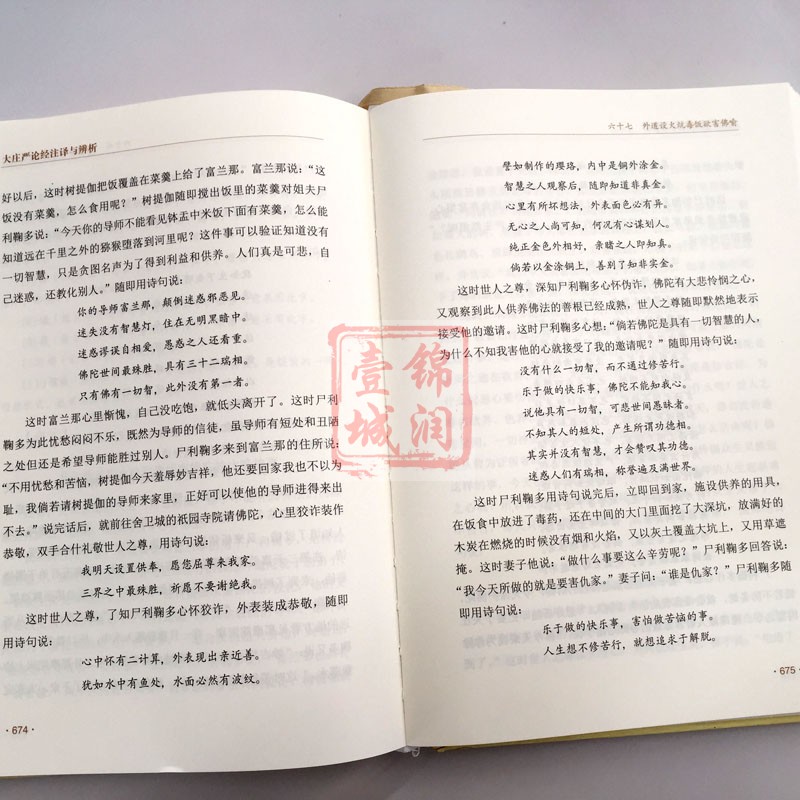 大庄严论经注译与辨析
好以后，这时树提伽把饭覆盖在菜羹上给了富兰那。富兰那说：“这
饭没有菜羹，怎么食用呢？”树提伽随即搅出饭里的菜羹对姐夫尸
利鞠多说：“今天你的导师不能看见钵盂中米饭下面有菜羹，怎么能
知道远在千里之外的猕猴堕落到河里呢？这件事可以验证知道没有
一切智慧，只是贪图名声为了得到利益和供养。人们真是可悲，自
己迷惑，还教化别人。”随即用诗句说：
你的导师富兰那，颠倒迷惑邪恶见。
迷失没有智慧灯，住在无明黑暗中。
迷惑谬误自相爱，愚惑之人还看重。
佛陀世间最殊胜，具有三十二瑞相。
只有佛有一切智，此外没有第一者。
这时富兰那心里惭愧，自己没吃饱，就低头离开了。这时尸利
鞠多为此忧愁闷闷不乐，既然为导师的信徒，虽导师有短处和丑陋
之处但还是希望导师能胜过别人。尸利鞠多来到富兰那的住所说：
“不用忧愁和苦恼，树提伽今天羞辱妙吉祥，他还要回家我也不以为
耻，我倘若请树提伽的导师来家里，正好可以使他的导师进得来出
不去。”说完话后，就前往舍卫城的祇园寺院请佛陀，心里狡诈装作
恭敬，双手合什礼敬世人之尊，用诗句说：
我明天设置供奉，愿您屈尊来我家。
三界之中最殊胜，祈愿不要谢绝我。
这时世人之尊，了知尸利鞠多心怀狡诈，外表装成恭敬，随即
用诗句说：
心中怀有二计算，外表现出亲近善。
犹如水中有鱼处，水面必然有波纹。
·674·
六十七 外道设火坑毒饭欲害佛喻
譬如制作的璎珞，内中是铜外涂金。
智慧之人观察后，随即知道非真金。
心里有所坏想法，外表面色必有异。
无心之人尚可知，何况有心谋划人。
纯正金色外相好，亲睹之人即知真。
倘若以金涂铜上，善别了知非实金。
这时世人之尊，深知尸利鞠多心怀伪诈，佛陀有大悲怜悯之心，
又观察到此人供养佛法的善根已经成熟，世人之尊随即默然地表示
接受他的邀请。这时尸利鞠多心想：“倘若佛陀是具有一切智慧的人，
为什么不知我害他的心就接受了我的邀请呢？”随即用诗句说：
没有什么一切智，而不通过修苦行。
乐于做的快乐事，佛陀不能知我心。
说他具有一切智，可悲世间愚昧者。
不知其人的短处，产生所谓功德相。
其实并没有智慧，才会赞叹其功德。
迷惑人们有瑞相，称誉遍及满世界。
这时尸利鞠多用诗句说完后，立即回到家，施设供养的用具，
在饭食中放进了毒药，还在中间的大门里面挖了大深坑，放满好的
木炭在燃烧的时候没有烟和火焰，又以灰土覆盖大坑上，又用草遮
掩。这时妻子他说：“做什么事要这么辛劳呢？”尸利鞠多回答说：
“我今天所做的就是要害仇家。”妻子问：“谁是仇家？”尸利鞠多随
即用诗句说：
乐于做的快乐事，害怕做苦恼的事。
人生想不修苦行，就想追求于解脱。
675·
锦润
壹城